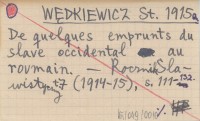 WĘDKIEWICZ St. 1915a
De quelques emprunts du
slave occidental au
roumain. — Rocznik Sla-
wistyczny 7 (1914-15), s. 111-132.